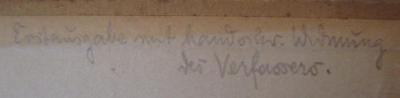 Erstausgabe mit handschr. Widmung
des Verfassers.